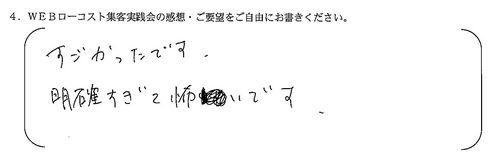 4．ＷＥＢローコスト集客実践会の感想・ご要望をご自由にお書きください。
すごかったです．
明確すぎて怖いです．